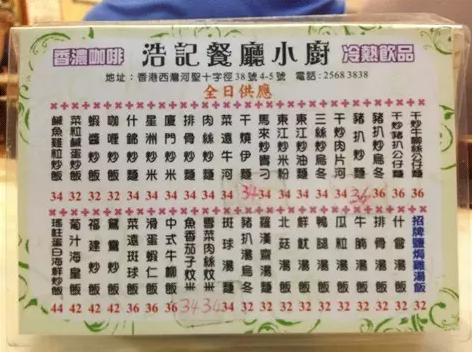 香濃咖啡 浩記餐廳小廚 冷熱飲品
地址：香港西灣河聖十字徑38號4-5號 電話：2568 3838
全日供應
干炒牛柳絲公仔麵 36
干炒豬扒公仔麵 36
豬扒炒烏冬 36
豬扒炒麵 36
干炒肉片河 34
三絲炒烏冬 34
東江炒油麵 34
東江炒米粉 34
馬來炒貴刁 34
干燒伊麵 34
菜遠牛河 34
肉絲炒麵 34
排骨炒麵 34
廈門炒米 34
星洲炒米 34
什錦炒麵 34
咖喱炒飯 32
蝦醬炒飯 32
菜粒鹹蛋炒飯 32
鹹魚雞粒炒飯 34
招牌鹽焗雞湯飯 32
什會湯飯 32
排骨湯飯 32
牛腩湯飯 32
瓜粒湯飯 32
鴨腿湯飯 32
鮮魷湯飯 32
北菇湯飯 32
羅漢齋湯麵 32
豬扒湯烏冬 32
斑球湯麵 34
雪菜肉絲炆米 34
魚香茄子炆米 34
中式牛柳飯 36
滑蛋蝦仁飯 36
菜遠斑球飯 36
鴛鴦炒飯 42
福建炒飯 42
葡汁海皇飯 42
瑤柱蛋白海鮮炒飯 44